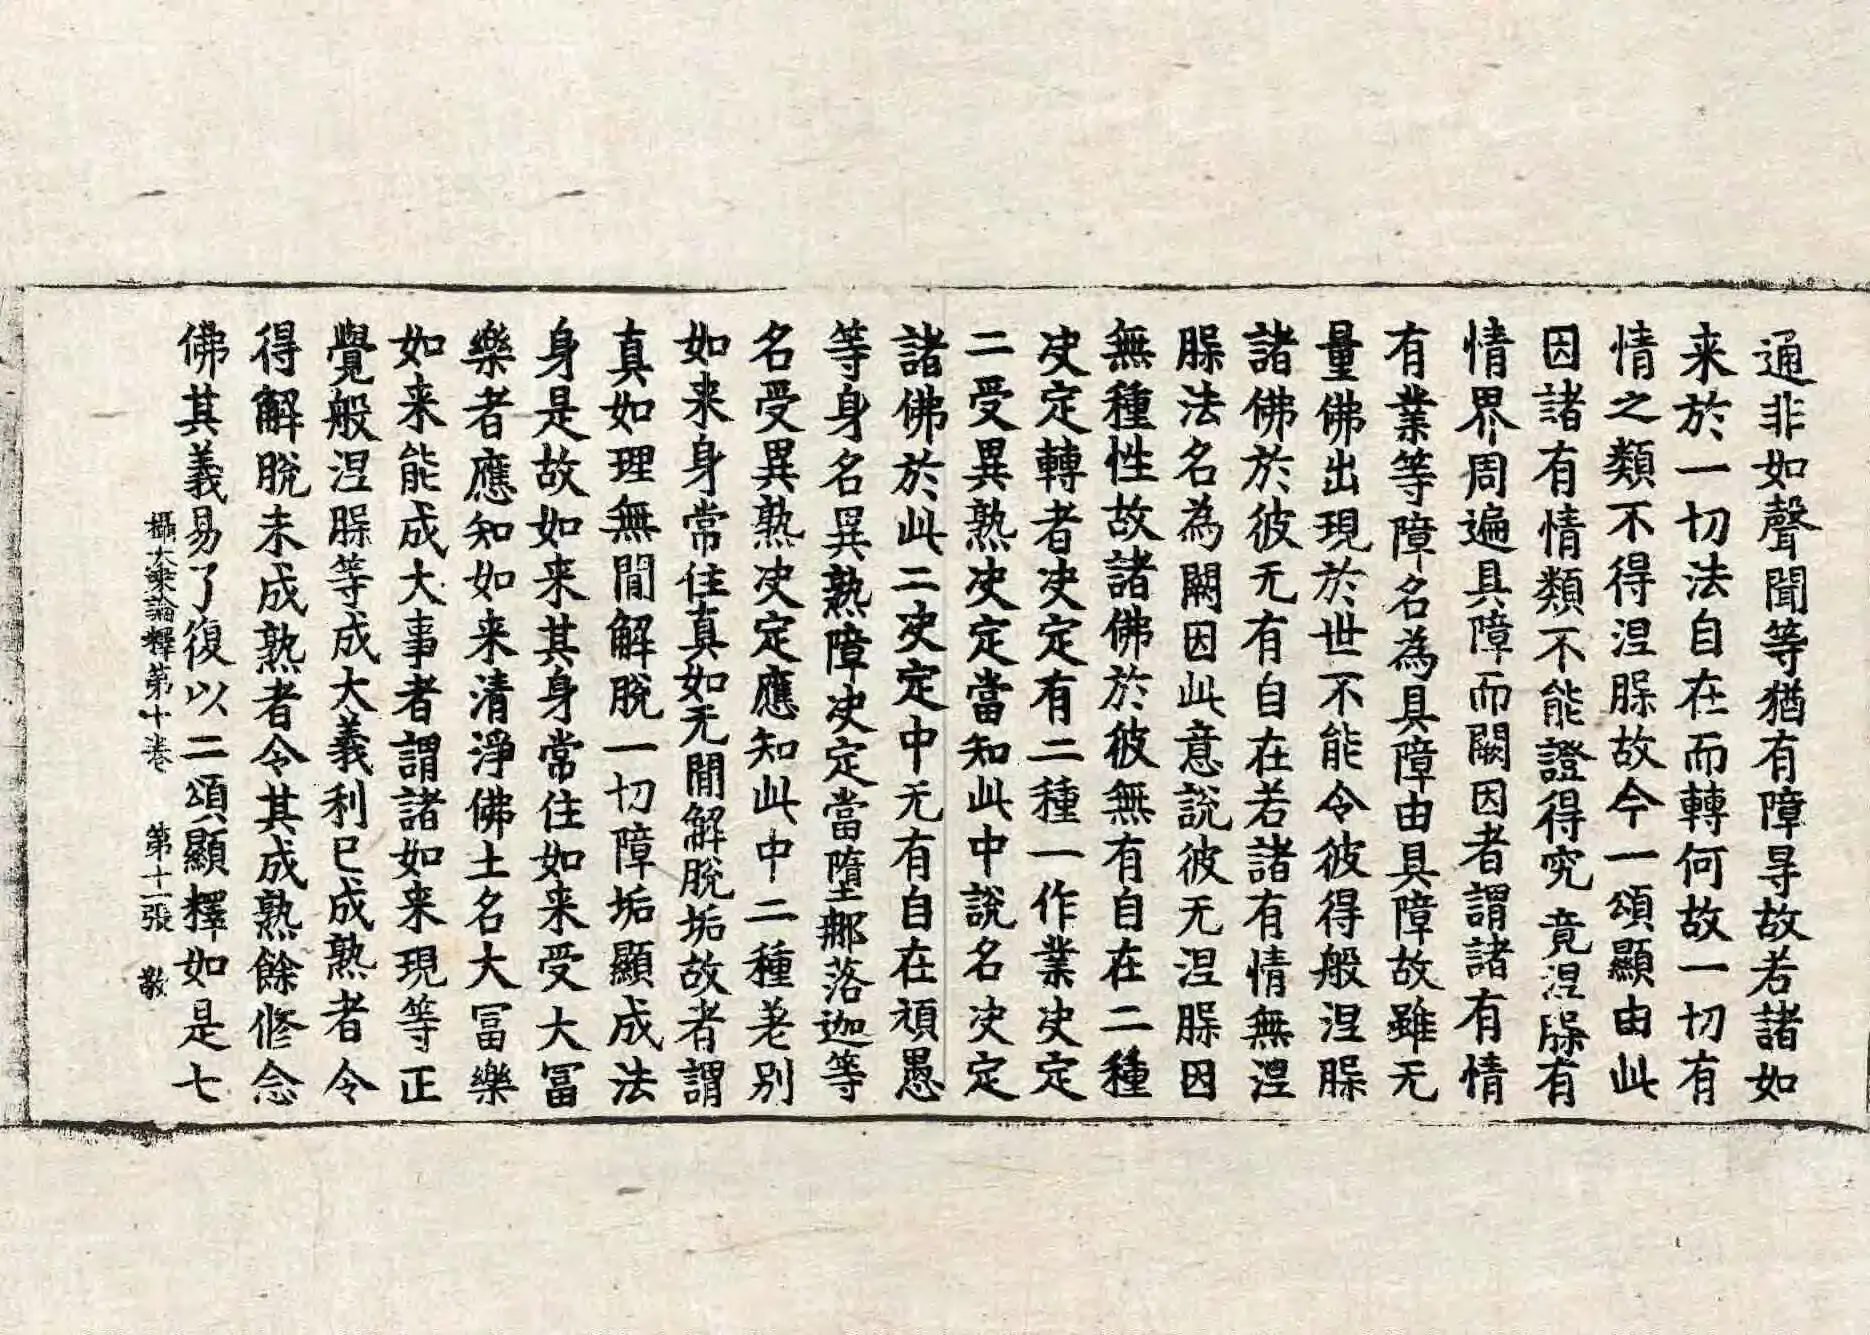 通非如聲聞等猶有障㝵故若諸如
来於一切法自在而轉何故一切有
情之類不得涅膓故今一頌顯由此
因諸有情類不能證得究竟涅膓有
情界周遍具障而闕因者謂諸有情
有業等障名為具障由具障故雖无
量佛出現於世不能令彼得般涅膓
諸佛於彼无有自在若諸有情無涅
膓法名為闕因此意說彼无涅膓因
無種性故諸佛於彼無有自在二種
决定轉者决定有二種一作業决定
二受異熟决定當知此中說名决定
諸佛於此二决定中无有自在頑愚
等身名異熟障决定當墮那落迦等
名受異熟决定應知此中二種差別
如来身常住真如无閒解脫垢故者謂
真如理無閒解脫一切障垢顯成法
身是故如来其身常住如来受大冨
樂者應知如来清淨佛土名大冨樂
如来能成大事者謂諸如来現等正
覺般涅膓等成大義利已成熟者令
得解脫未成熟者令其成熟餘修念
佛其義易了復以二頌顯釋如是七
攝大乘論釋第十卷 第十一張 敬